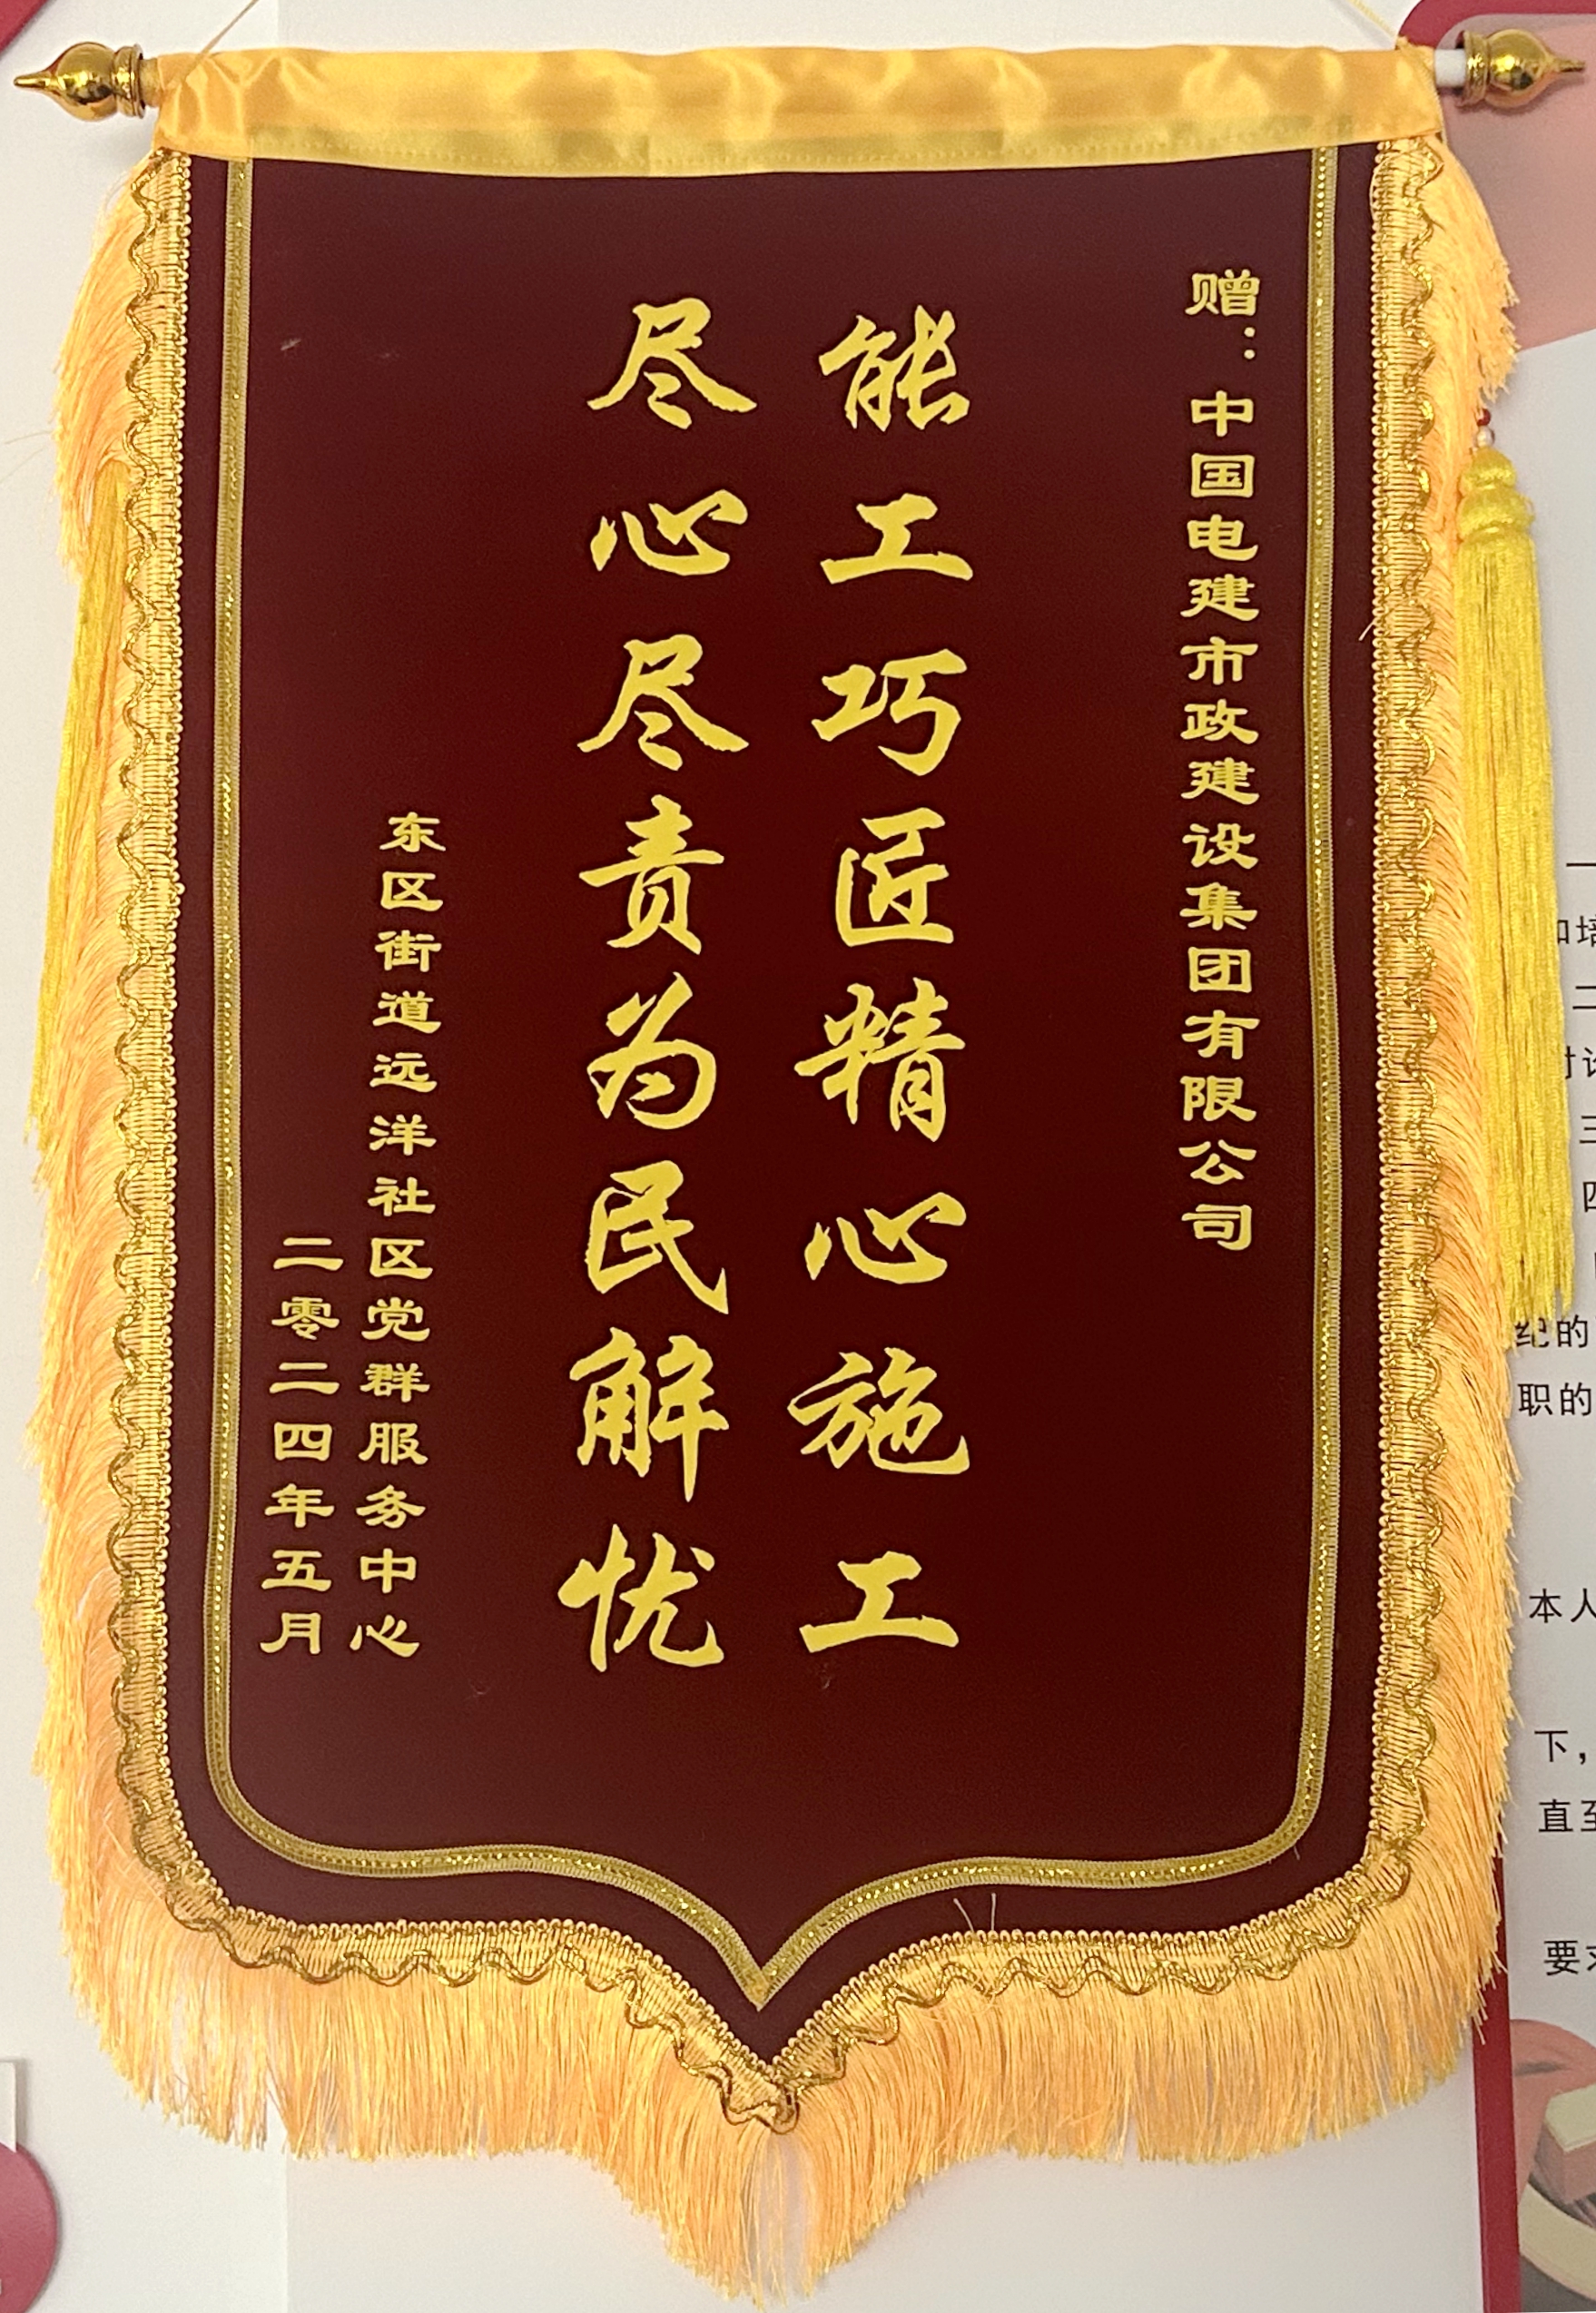 赠：中国电建市政建设集团有限公司
能工巧匠精心施工
尽心尽责为民解忧
东区街道远洋社区党群服务中心
二零二四年五月
纪的
职的
本人
下，
直至
要求